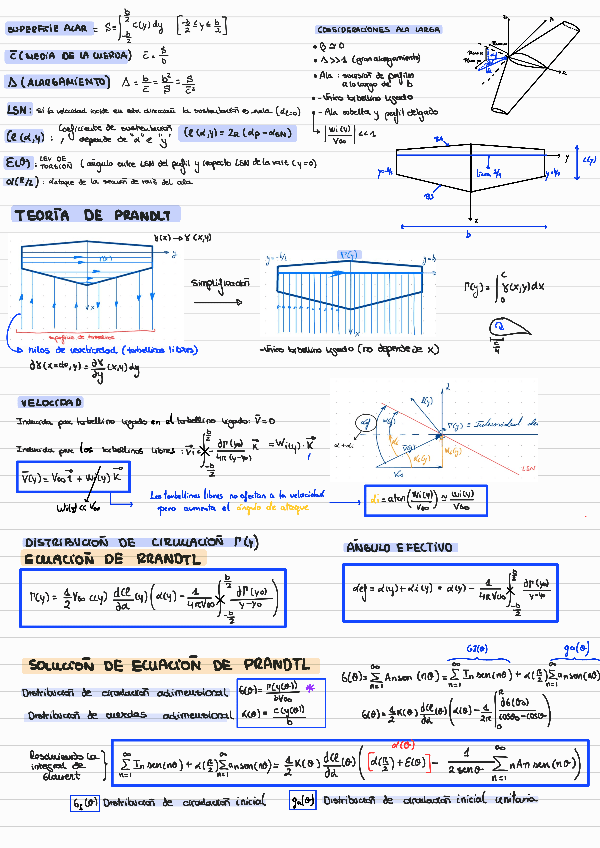 SUPERFICIE ALAR = S = ∫_{-b/2}^{b/2} c(y) dy [-b/2 ≤ y ≤ b/2]
c̄ (MEDIA DE LA CUERDA) c̄ = S/b
Λ (ALARGAMIENTO) Λ = b/c̄ = b²/S = S/c̄²
LSN: Si la velocidad incide en esta dirección la sustentación es nula (cl=0)
Cl(α,y): Coeficiente de sustentación, depende de "α" e "y" Cl(α,y) = 2π(αp-αLSN)
E(y): LEY DE TORSIÓN (ángulo entre LSN del perfil y respecto LSN de la raíz (y=0)
α(π/2): Ataque de la sección de raíz del ala
CONSIDERACIONES ALA LARGA
• β ≅ 0
• Λ>>1 (gran alargamiento)
• Ala: sucesión de perfiles a lo largo de b
• -Único torbellino ligado
• -Ala esbelta y perfil delgado
|Wi(y)/V∞| <<1
BA
y
línea c/4
BS
c(y)
b
z
TEORÍA DE PRANDLT
γ(x) → γ(x,y)
y
x
superficie de torbellinos
→ hilos de vorticidad (torbellinos libres)
∂γ(x=∞,y) = ∂γ/∂y (x,y) dy
Simplificación
y=-b/2
Γ(y)
y=b/2
-Único torbellino ligado (no depende de x)
Γ(y) = ∫_0^c γ(x,y) dx
c/4
VELOCIDAD
Inducida por torbellino ligado en el torbellino ligado: V̄=0
Inducida por los torbellinos libres: V̄i = ∫_{-b/2}^{b/2} -∂Γ(y0)/4π(y-y0) K̄ = Wi(y)·K̄
V̄(y) = V∞ i + Wi(y) K̄
Wi(y) << V∞
Los torbellinos libres no afectan a la velocidad
pero aumenta el ángulo de ataque
αi = atan(Wi(y)/V∞) ≈ Wi(y)/V∞
z
V∞
LSN
DISTRIBUCIÓN DE CIRULACIÓN Γ(y)
ECUACIÓN DE RRANDTL
Γ(y) = 1/2 V∞ c(y) dCl/dα (y) (α(y) - 1/4πV∞ ∫_{-b/2}^{b/2} ∂Γ(y0)/y-y0)
ÁNGULO EFECTIVO
αef = α(y)+αi(y) = α(y) - 1/4πV∞ ∫_{-b/2}^{b/2} ∂Γ(y0)/y-y0
SOLUCIÓN DE ECUACIÓN DE PRANDTL
Distribución de circulación adimensional G(θ) = Γ(y(θ))/bV∞ *
Distribución de cuerdas adimensional K(θ) = c(y(θ))/b
GI(θ) ga(θ)
G(θ) = ∑_{n=1}^∞ An sen(nθ) = ∑_{n=1}^∞ In sen(nθ) + α(π/2) ∑_{n=1}^∞ an sen(nθ)
G(θ) = 1/2 K(θ) dCl/dα (θ) (α(θ) - 1/2π ∫_0^π ∂G(θ0)/cosθ0-cosθ)
Resolviendo la integral de Glauert
∑_{n=1}^∞ In sen(nθ) + α(π/2) ∑_{n=1}^∞ an sen(nθ) = 1/2 K(θ) dCl/dα (θ) ([α(π/2) + E(θ)] - 1/2senθ ∑_{n=1}^∞ n An sen(nθ))
α(θ)
GI(θ) Distribución de circulación inicial ga(θ) Distribución de circulación inicial unitaria